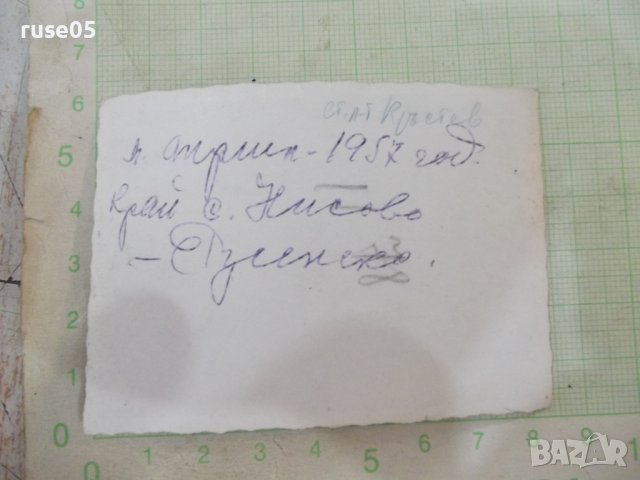 ruse05
ст.л-т Кръстев
м. Април - 1957 год.
край с. Нисово
- Русенско.
8
7
6
5
4
3
2
1
0
0 1 2 3 4 5 6 7 8 9 10
BAZAR